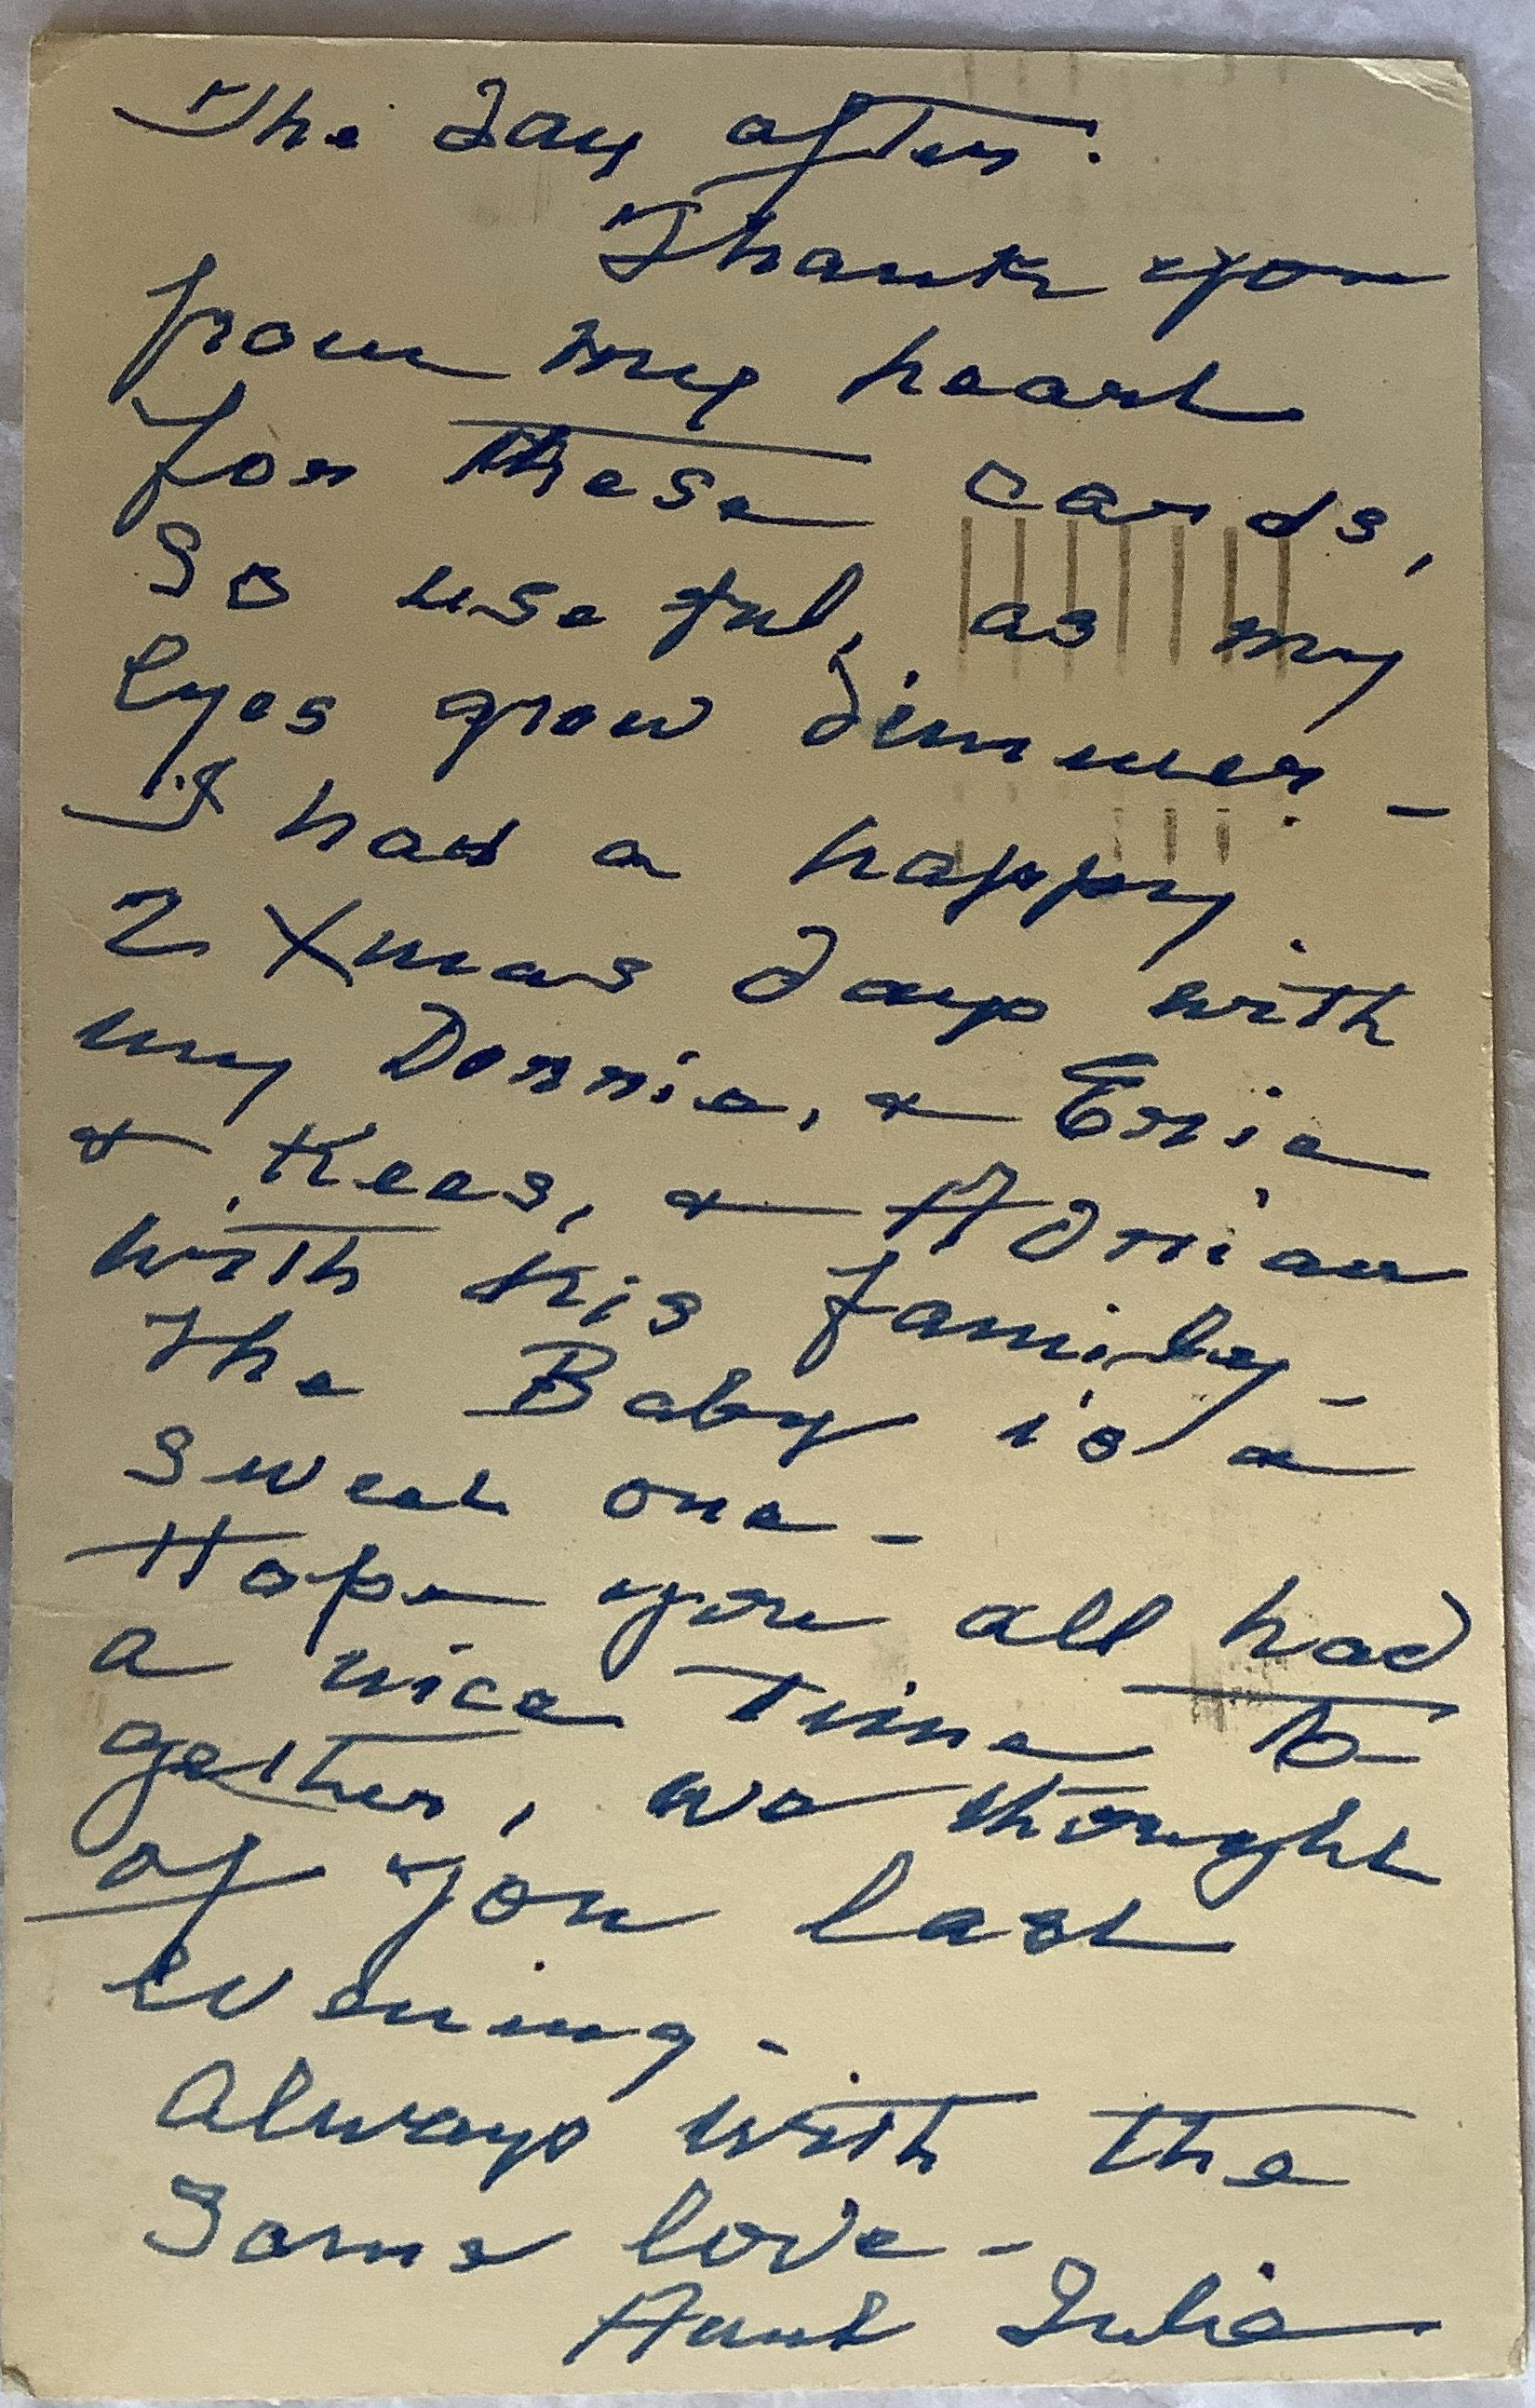 The day after:
Thank you
from my heart
for these cards,
so useful, as my
eyes grow dimmer. -
I had a happy
2 Xmas days with
my Donnie, & Eric
& Kees, & Adrian
with his family -
The Baby is a
sweet one -
Hope you all had
a nice time to
gether, we thought
of you last
evening -
Always with the
Same love -
Aunt Julia